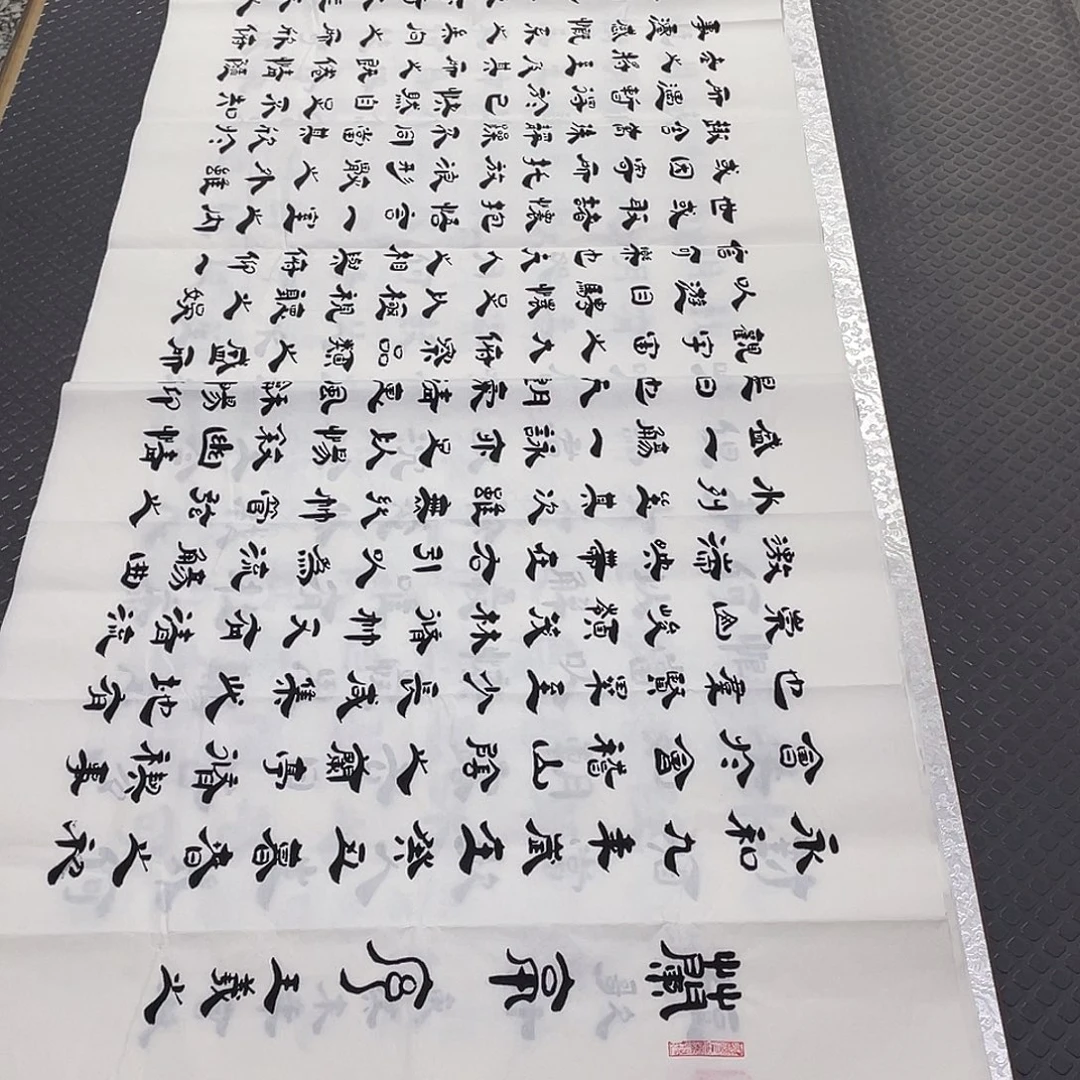 蘭亭序 王羲之
永和九年歲在癸丑暮春之初
會於會稽山陰之蘭亭脩禊事
也羣賢畢至少長咸集此地有
崇山峻領茂林脩竹又有清流
激湍映帶左右引以為流觴曲
水列坐其次雖無絲竹管弦之
盛一觴一詠亦足以暢敘幽情
是日也天朗氣清惠風龢暢仰
觀宇宙之大俯察品類之盛所
以遊目騁懷足以極視聽之娛
信可樂也夫人之相與俯仰一
世或取諸懷抱悟言一室之內
或因寄所托放浪形骸之外雖
趣舍萬殊靜躁不同當其欣於
所遇暫得於己快然自足不知
老之將至及其所之既倦情隨
事遷感慨係之矣向之所欣俯